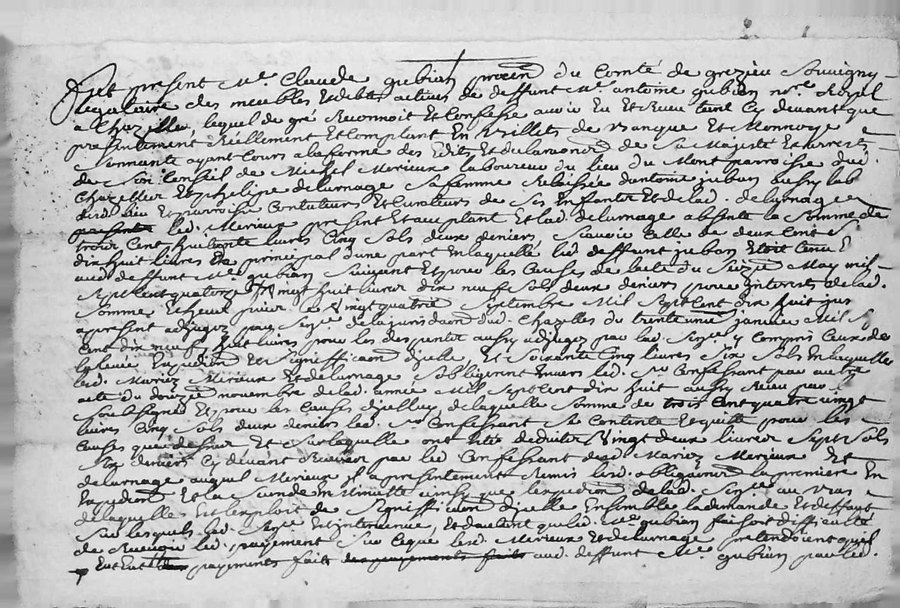 fut présent Me Claude gubian procur du Comté de grezieu Souvigny
légataire des meubles et debtes actives de deffunt Me antoine gubian nore Royal
a Chazelles, lequel de gré Reconnoit et Confesse avoir Eu et Receu tant Cy devant que
presentement Réellement et Comptant En Billets de Banque Et Monnoye
Sonnante ayant Cours a la forme des Edits et de la mond de Sa Majesté Et arrests
de Son Conseil de Michel Merieux laboureur du lieu du Mont parroisse dud
Chazelles Et phelipe delurnage Sa femme Relaissée d'antoine juban aussy lab
dud. lieu Et parroisse Contuteurs et Curateurs de Ses Enfants Et de lad. delurnage
led. Merieux present Et acceptant Et lad. delurnage absente la Somme de
trois Cent huitante livres Cinq Sols deux deniers Savoir Celle de deux Cent
dix huit livres En principal d'une part En laquelle led deffunt juban Etoit tenu
aud. deffunt Me gubian Suivant Et pour les Causes de l'acte du Seize May mil
Sept Cent quatorze Vingt huit livres dix neuf Sols deux deniers pour interets de lad.
Somme Echeus puis le Vingt quatre Septembre Mil Sept Cent dix huit jus
apresent adjugez par Sentce de la jurisdaon dud. Chazelles du trente un janvier Mil Sept
Cent dix neuf huit livres pour les despents aussy adjugez par lad. Sentce y Compris Ceux de
Expedion Et Signifficaon d'icelle, Et Soixante Cinq livres Six Sols En laquelle
led. Mariez Merieux Et delurnage S'obligerent Envers led. Sr Confessant par autre
acte du douze novembre de lad. année Mil Sept Cent dix huit aussy Receu par
Soubsigné Et pour les Causes d'icelluy, de laquelle Somme de trois Cent quatre vingt
livres Cinq Sols deux deniers led. Sr Confessant Se Contente Et quitte pour les
Causes que dessus Et Sur laquelle ont été deduites Vingt deux livres Sept Sols
Six deniers Cy devant Receues par led. Confessant desd Mariez Merieux Et
delurnage auquel Merieux il a presentement Remis lesd. obligations la premiere En
Expedion Et la Seconde En Minutte ainsy que l'expedion de lad. Sentce
de laquelle Et l'exploit de Signifficaon d'icelle Ensemble la demande Et deffaut
Sur lesquels lad. Sentce Est intervenue, Et d'autant que led. Me gubian faisoit difficulté
de Recevoir led. payement Sur Ceque lesd. Merieux Et delurnage pretendoient qu'il
payements faits des payements faits aud. deffunt Me gubian par led.